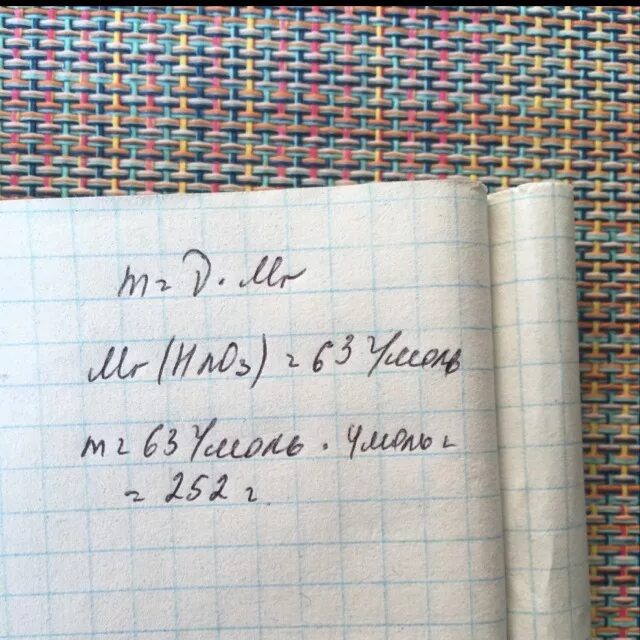 m = ν · Mr
Mr (HNO3) = 63 г/моль
m = 63 г/моль · 4 моль =
= 252 г.